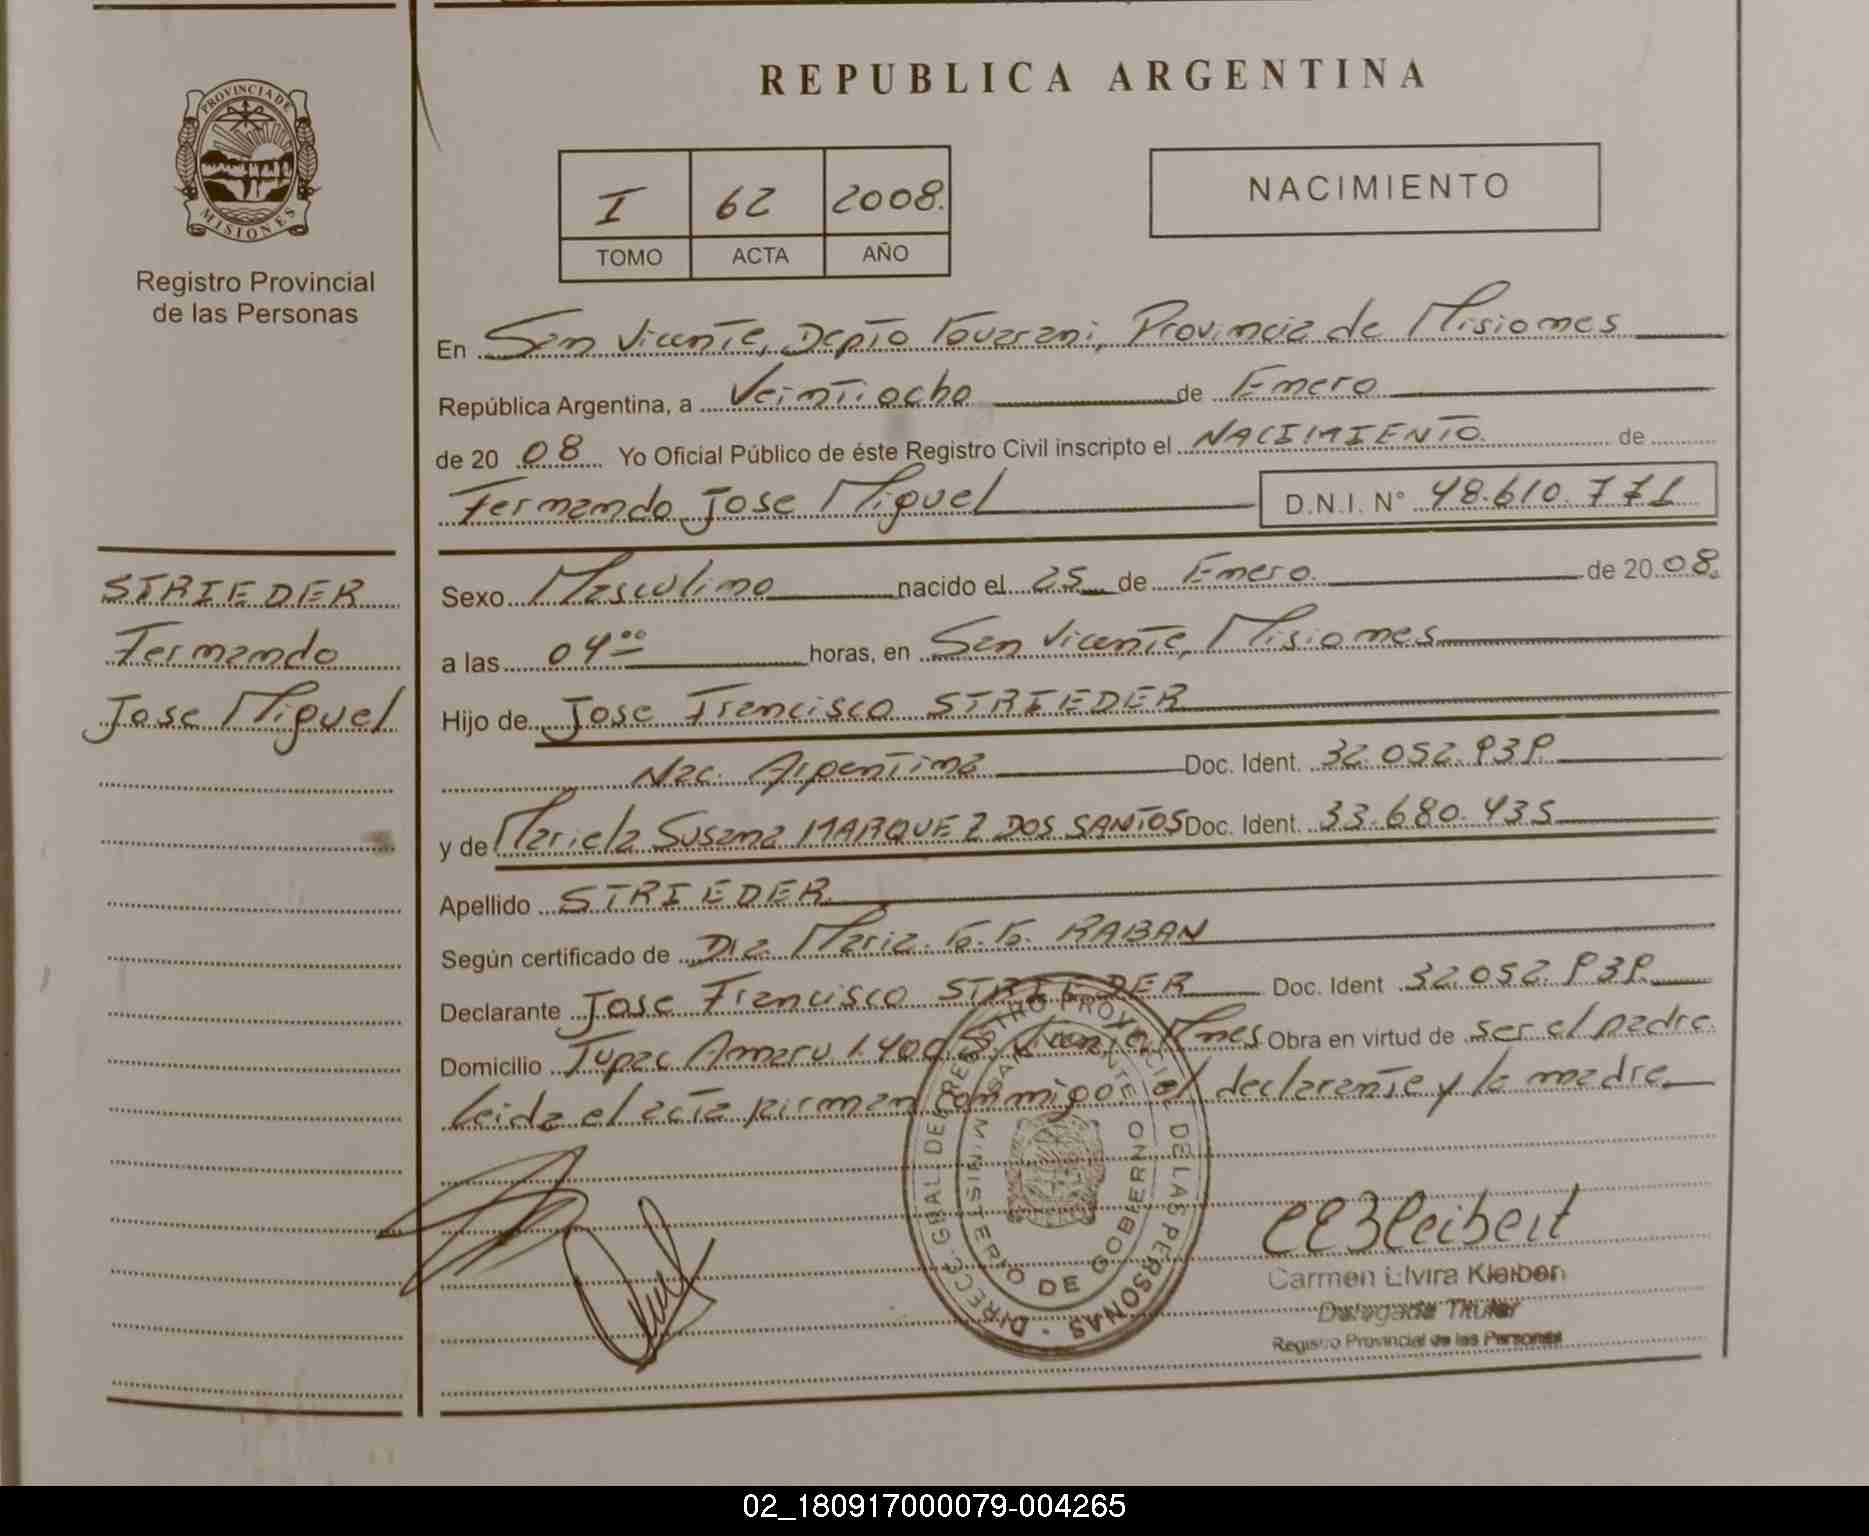 REPUBLICA ARGENTINA
PROVINCIA DE
MISIONES
Registro Provincial
de las Personas
I 62 2008.
TOMO ACTA AÑO
NACIMIENTO
En San Vicente, Depto Guarani, Provincia de Misiones
República Argentina, a Veintiocho de Enero
de 20 08 Yo Oficial Público de éste Registro Civil inscripto el NACIMIENTO de
Fernando Jose Miguel D.N.I. N° 48.610.771
STRIEDER
Fernando
Jose Miguel
Sexo Masculino nacido el 25 de Enero de 20 08.
a las 04 00 horas, en San Vicente, Misiones
Hijo de Jose Francisco STRIEDER
Nac. Argentina Doc. Ident. 32.052.939
y de Mariela Susana MARQUEZ DOS SANTOS Doc. Ident. 33.680.435
Apellido STRIEDER
Según certificado de Dra. Maria. G.G. RABAN
Declarante Jose Francisco STRIEDER Doc. Ident 32.052.939
Domicilio Tupac Amaru 1.400 S. Vicente Mnes Obra en virtud de ser el padre.
Leida el acta firman conmigo el declarante y la madre
DIRECC. GRAL. DE REGISTRO PROVINCIAL DE LAS PERSONAS
MINISTERIO DE GOBIERNO
SAN VICENTE
Carmen Elvira
Delegada Titular
Registro Provincial de las Personas
02_180917000079-004265